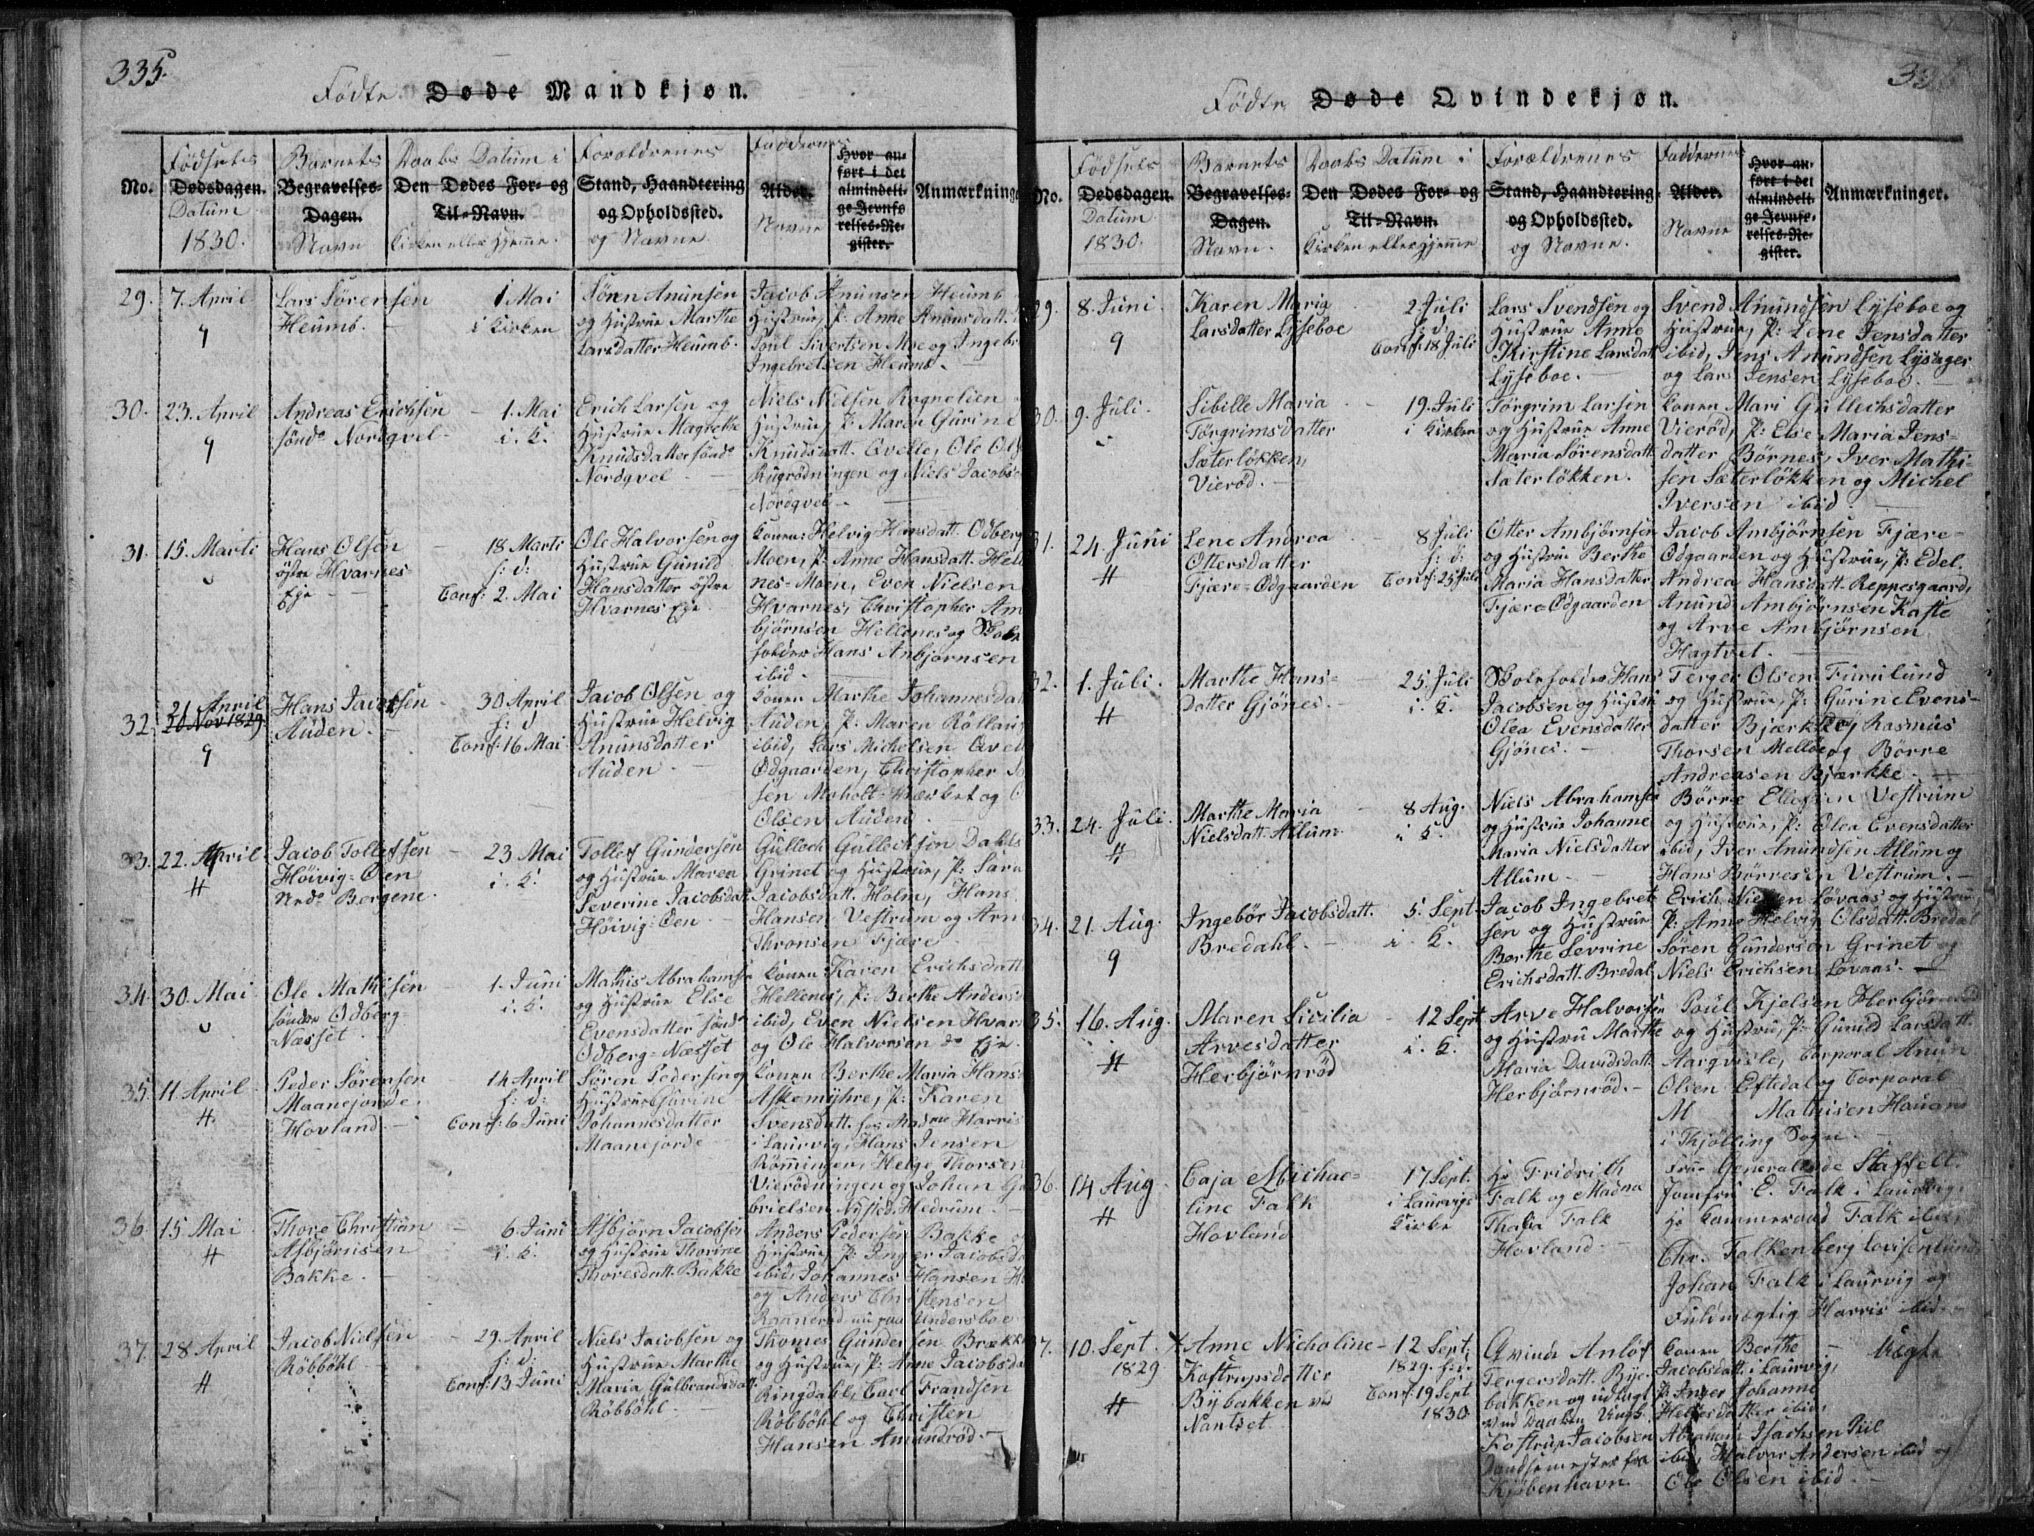 335.
Fødte Døde Mandkjøn.
No.
Fødsels
Dødsdagen.
Datum
1830.
Barnets
Begravelses-
Dagen.
Navn
Daabs Datum i
Den Dødes For- og
Til-Navn.
Kirken eller Hjemme.
Forældrenes
Stand, Haandtering
og Opholdssted.
og Navne.
Faddernes
Alder.
Navne
Hvor an-
ført i det
almindeli-
ge Jevnfø
relses-Re-
gister.
Anmærkninge
29. 7. April
Lars Sørensen
Heumb.
1 Mai
i Kirken
Sören Anunsen
og Hustrue Marthe
Larsdatter Heumb.
Jacob Anunsen Heumb
Hustrue, P: Anne Anunsdatt.
Poul Sivertsen Moe og Ingebr
Ingebretsen Heumb.
30. 23. April
Andreas Erichsen
sönd. Nordqvel.
1. Mai
i. K.
Erich Larsen og
Hustrue Magrethe
Knudsdatter sönd.
Nordqvel
Niels Nielsen Rognelien
Hustrue, P: Maren Gurine
Knudsdatt. Qvelle, Ole Ols
Rugrödningen og Niels Jacobs
Nordqvel
31. 15. Marti
Hans Olsen
östre Hvarnes
Eje
18 Marti
h: d:
Conf: 2. Mai
Ole Halvorsen og
Hustrue Gunild
Hansdatter östre
Hvarnes Eje.
Konen Helvig Hansdatt. Odberg
Moen, P: Anne Hansdatt. Hell
nes-Moen, Even Nielsen
Hvarnes, Christopher Am
björnsen Hellenes og Skole
holder Hans Anbjörnsen
ibid.
32. 21 April
20 Nov 1829
Hans Jacobsen
Auden.
30 April
h: d
Conf: 16 Mai
Jacob Olsen og
Hustrue Helvig
Anunsdatter
Auden.
Konen Marthe Johannesdat
Auden, P: Maren
ibid, Lars Michelsen Qvel
Odgaarden, Christopher
sen Moholt-Værket og
Olsen Auden
33. 22. April
Jacob Tollefsen
Höivig-Oen
Nrd. Bergene.
23 Mai
i. K.
Tollef Gundersen
og Hustrue Maren
Severine Jacobsdatt
Höivig-Oen
Gulloch Gullochsen Dahls
Grinet og Hustrue, P: Sara
Jacobsdatt. Holm, Hans
Hansen Vestrum og Arn
Thronsen Fjære
34. 30. Mai
Ole Mathisen
søndre Odberg-
Næsset
1. Juni
i. K.
Mathis Abrahamsen
og Hustrue Else
Evensdatter sönd.
Odberg-Næsset
Konen Karen Erichsdatt
Hellenes, P: Birthe Anders
ibid, Even Nielsen Hvar
og Ole Halvorsen do Eje.
35. 11. April
Peder Sörensen
Maanejorde.
Hovland
14 April
h: d:
Conf: 6 Juni
Sören Pedersen og
Hustrue Gjörine
Johannesdatter
Maanejorde
Konen Berthe Maria Hans
Askemÿhre, P: Karen
Svensdatt. hos Madme Harris
i Laurvig, Hans Jensen
Römmingen, Helge Thorsen
Vierödningen og Johan Ga
brielsen Nysted, Hedrum.
36. 15. Mai
Thore Christian
Asbjörnsen
Bakke.
6 Juni
i. K.
Asbjörn Jacobsen
og Hustrue Thorine
Thoresdatt. Bakke
Anders Pedersen Bakke
Hustrue, P: Inger Jacobsda
ibid, Johannes Hansen
og Anders Christensen
Raanerød nu paa Andersboe
37. 28 April
Jacob Nielsen
Röbböhl
29. April
h: d:
Conf: 13 Juni
Niels Jacobsen og
Hustrue Marthe
Maria Gulbrandsdatt.
Röbböhl.
Thomes Gundersen Brække
og Hustrue, P: Anne Jacobsda
Ringdahl, Carl Frandsen
Röbböhl og Christen
Hansen Amundröd.
Fødte Døde Qvindekjøn.
No.
Fødsels
Dødsdagen.
Datum
1830.
Barnets
Begravelses-
Dagen.
Navn.
Daabs Datum i
Den Dødes For- og
Til-Navn.
Kirken eller Hjemme
Forældrenes
Stand, Haandtering
og Opholdssted.
og Navne.
Faddernes
Alder.
Navne
Hvor an-
ført i det
almindeli-
ge Jevnfø-
relses-Re-
gister.
Anmærkninger.
29. 8. Juni
Karen Maria
Larsdatter Lÿseboe
2 Juli
h: d:
Conf: 18 Juli
Lars Svendsen og
Hustrue Anne
Kirstine Larsdatt
Lÿseboe.
Svend Amundsen Lÿseboe og
Hustrue, P: Lene Jensdatter
ibid, Jens Amundsen Lÿsager
og Lars Jensen Lÿseboe.
30. 9. Juli.
Sibille Maria
Törgrimsdatter
Sæterlökken,
Vieröd.
19. Juli
i Kirken
Törgrim Larsen
og Hustrue Anne
Maria Sörensdatt.
Sæterlökken.
Konen Mari Gullechsdatter
Vieröd, P: Else Maria Jens-
datter Börnes, Iver Mathi-
sen Sæterlökken og Michel
Iversen ibid
31. 24. Juni
Lene Andrea
Ottersdatter
Fjære-Odgaarden
8 Juli
h: d:
Conf: 25 Juli
Otter Ambjörnsen
og Hustrue Berthe
Maria Hansdatter
Fjære-Odgaarden
Jacob Ambjörnsen Fjære-
Odgaarden og Hustrue, P: Edel
Andrea Hansdatt. Reppesgaard,
Anund Ambjörnsen Kaste
og Arve Ambjörnsen
Hagtvet.
32. 1. Juli.
Marthe Hans-
datter Gjönes.
25. Juli
i. K.
Skoleholder Hans
Jacobsen og Hustru
Olea Evensdatter
Gjönes.
Terger Olsen Furulund
og Hustrue, P: Gurine Evens-
datter Bjærkke, Rasmus
Thorsen Melløe og Börre
Andreasen Bjærkke.
33. 24. Juli.
Marthe Maria
Nielsdatt. Allum.
8 Aug.
i. K.
Niels Abrahamsen
og Hustrue Johanne
Maria Nielsdatter
Allum.
Börre Ellefsen Vestrum
og Hustrue, P: Olea Evensdatter
ibid, Iver Anundsen Allum og
Hans Börresen Vestrum.
34. 21. Aug.
Ingebör Jacobsdatt.
Bredahl.
5. Sept.
i. K.
Jacob Ingebret-
sen og Hustrue
Berthe Sevrine
Erichsdatt. Bredal
Erich Nielsen Lovaas og Hustrue
P: Anne Helvig Olsdatt. Bredal
Sören Gundersen Grinet og
Niels Erichsen Lovaas.
35. 16. Aug.
Maren Sicilia
Arvesdatter
Herbjörnröd
12 Sept
i. K.
Arve Halvorsen
og Hustru Marthe
Maria Davidsdatt.
Herbjörnröd.
Poul Kjelsen Herbjörnröd
og Hustru, P: Gunild Larsdatt.
Aarqvisle, Corporal Anun
Olsen Eftedal og Corporal
M Mathisen Hauan
i Thjölling Sogn
36. 14 Aug.
Caja Michae-
line Falk
Hovland
17 Sept.
i Laurvigs
Kirke
Hr Fridrith
Falk og Madna
Thalia Falk
Hovland
Frue Generalinde Staffelt.
Jomfru E. Falk i Laurvig,
Hr Kammerraad Falk ibid,
Chr. Falkenberg Lovisenlund,
Johan Falk i Laurvig og
Fuldmægtig Harris ibid.
37. 10. Sept.
1829
Anne Nicholine
Kostrupsdatter
Bÿbakken ved
Nanset
12 Sept.
1829 h: d:
Conf: 19 Sept
1830
Qvinde Anlöf
Tergersdatt. Bÿe-
bakken og udlagt
ved Daaben Ungk.
Kostrup Jacobsen
Dandsemester fra
Kjöbenhavn
Konen Berthe
Jacobsdatt. i Laurvig,
P: Inger Johanne
Hellesdatter ibid,
Abraham Isachsen Piil
ibid, Halvor Andersen ibid og
Ole Olsen ibid.
Uægte